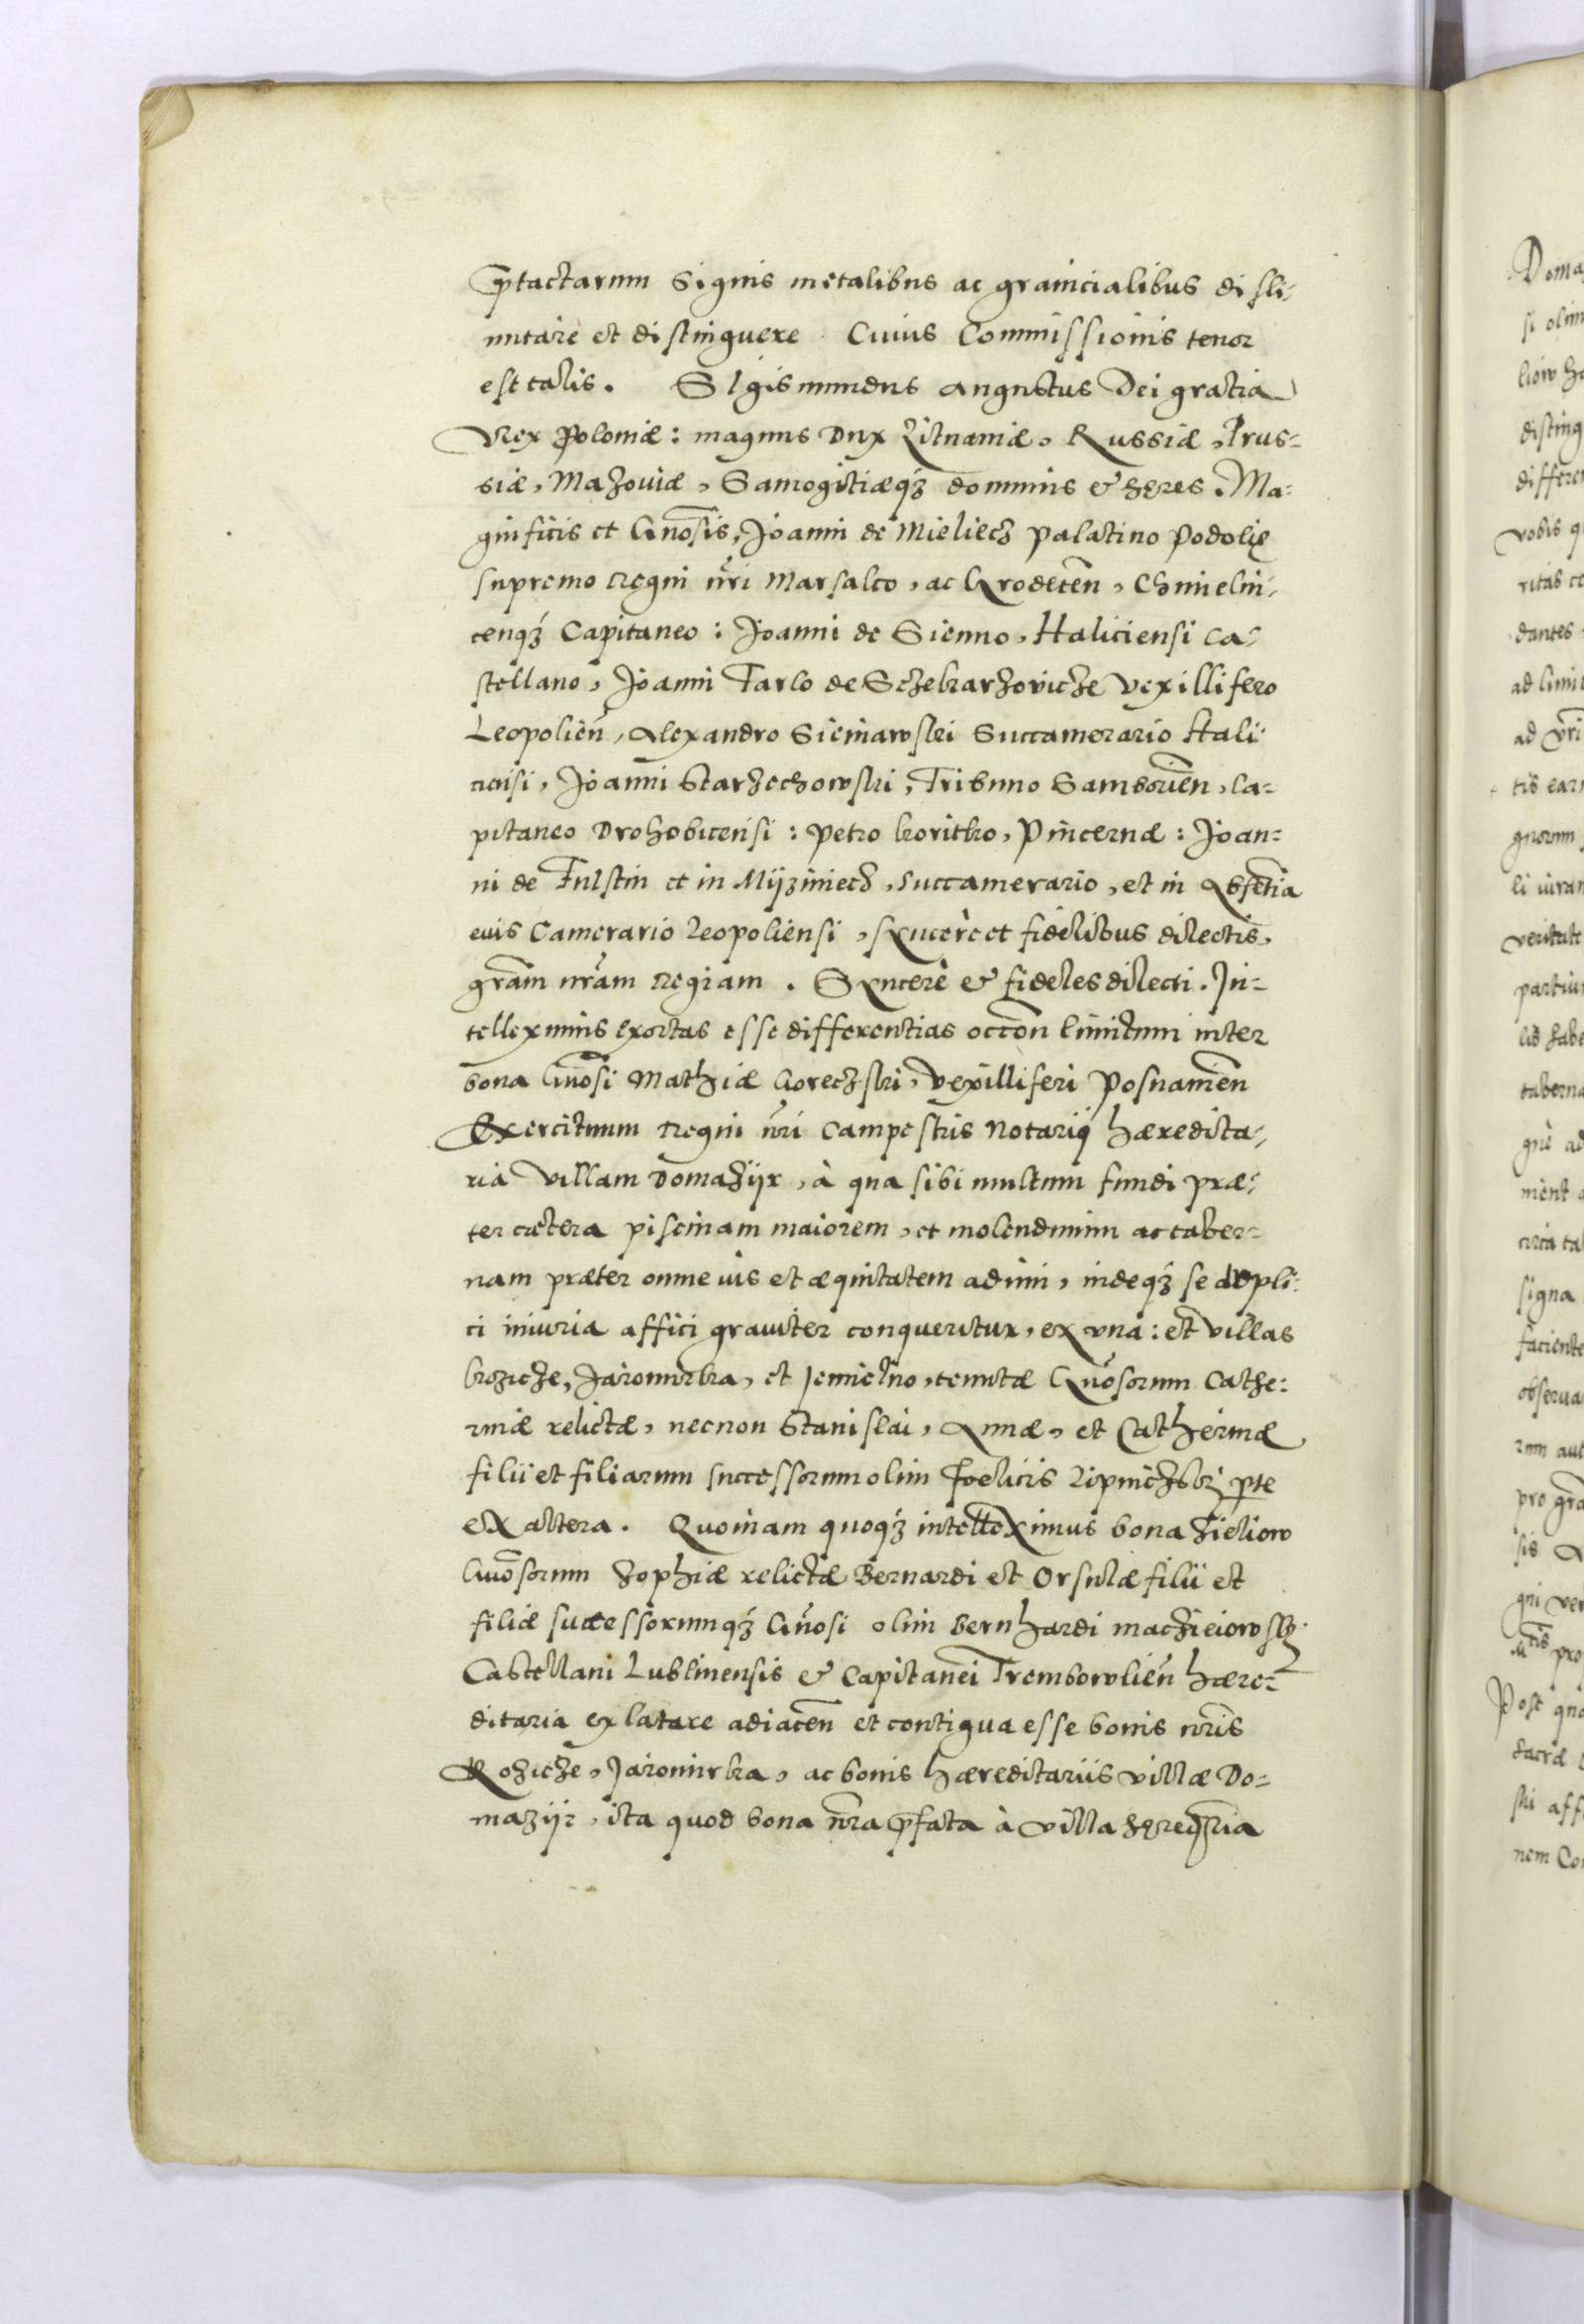 p̄tactarum Signis metalibus ac granicialibus disli-
mitare et distinguere. Cuius Commissionis tenor
est talis. Sigismundus Augustus Dei gratia
Rex Poloniæ: magnus Dux Lituaniæ, Russiæ, Prus=
siæ, Mazoviæ, Samogitiæq́ȝ dominus & hęres. Ma=
gnificis et Gn̄osis, Joanni de Mieliecz Palatino Podolię
supremo Regni nr̄i Marsalco, ac Grodecēn, Chmielni-
cenq́ȝ Capitaneo: Joanni de Sienno, Haliciensi Ca-
stellano, Joanni Tarlo de Sczekarzovicze Vexillifero
Leopolien̄, Alexandro Sieniawski Succamerario Hali-
ciensi, Joanni Starzechowski, Tribuno Samborien̄, Ca=
pitaneo Drohobicensi: Petro Koritko, Pincernæ: Joan=
ni de Fulstin et in Miżiniecz, Succamerario, et in Absētia
eius Camerario Leopoliensi, syncerè et fidelibus dilectis,
gra͞m nra͞m Regiam. Syncerè & fideles dilecti. In=
telleximus exortas esse differentias occōn limitum inter
bona Gn̄osi Mathiæ Goreczski, Vexilliferi Posnanien̄
Exercituum Regni nr̄i Campestris Notarij hæredita-
ria Villam Domażijr, à qua sibi multum fundi præ-
ter cætera piscinam maiorem, et molendinum ac taber=
nam præter omne ius et æquitatem adimi, indeq́ȝ se dupli-
ci iniuria affici graviter conqueritur, ex vna: et Villas
Kozicze, Jaromirka, et Jemielno, tenutæ Gn̄osorum Cathe:
rinæ relictæ, necnon Stanislai, Annæ, et Catherinæ
filii et filiarum successorum olim Fœlicis Lipniczsky p̱te
ex altera. Quoniam quoq́ȝ intelleximus bona Zieliow
Gn̄osorum Zophiæ relictæ Bernardi et Orsulæ filii et
filiæ successorumq́ȝ Gn̄osi olim Bernhardi Maczieiowsky
Castellani Lublinensis & Capitanei Trembowlien̄ hære=
ditaria ex latare adiacēn et contigua esse bonis nr̄is
Kozicze, Jaromirka, ac bonis hæreditariis villæ Do=
mazijr, ita quod bona nr̄a p̄fata à villa hęredr̄ia